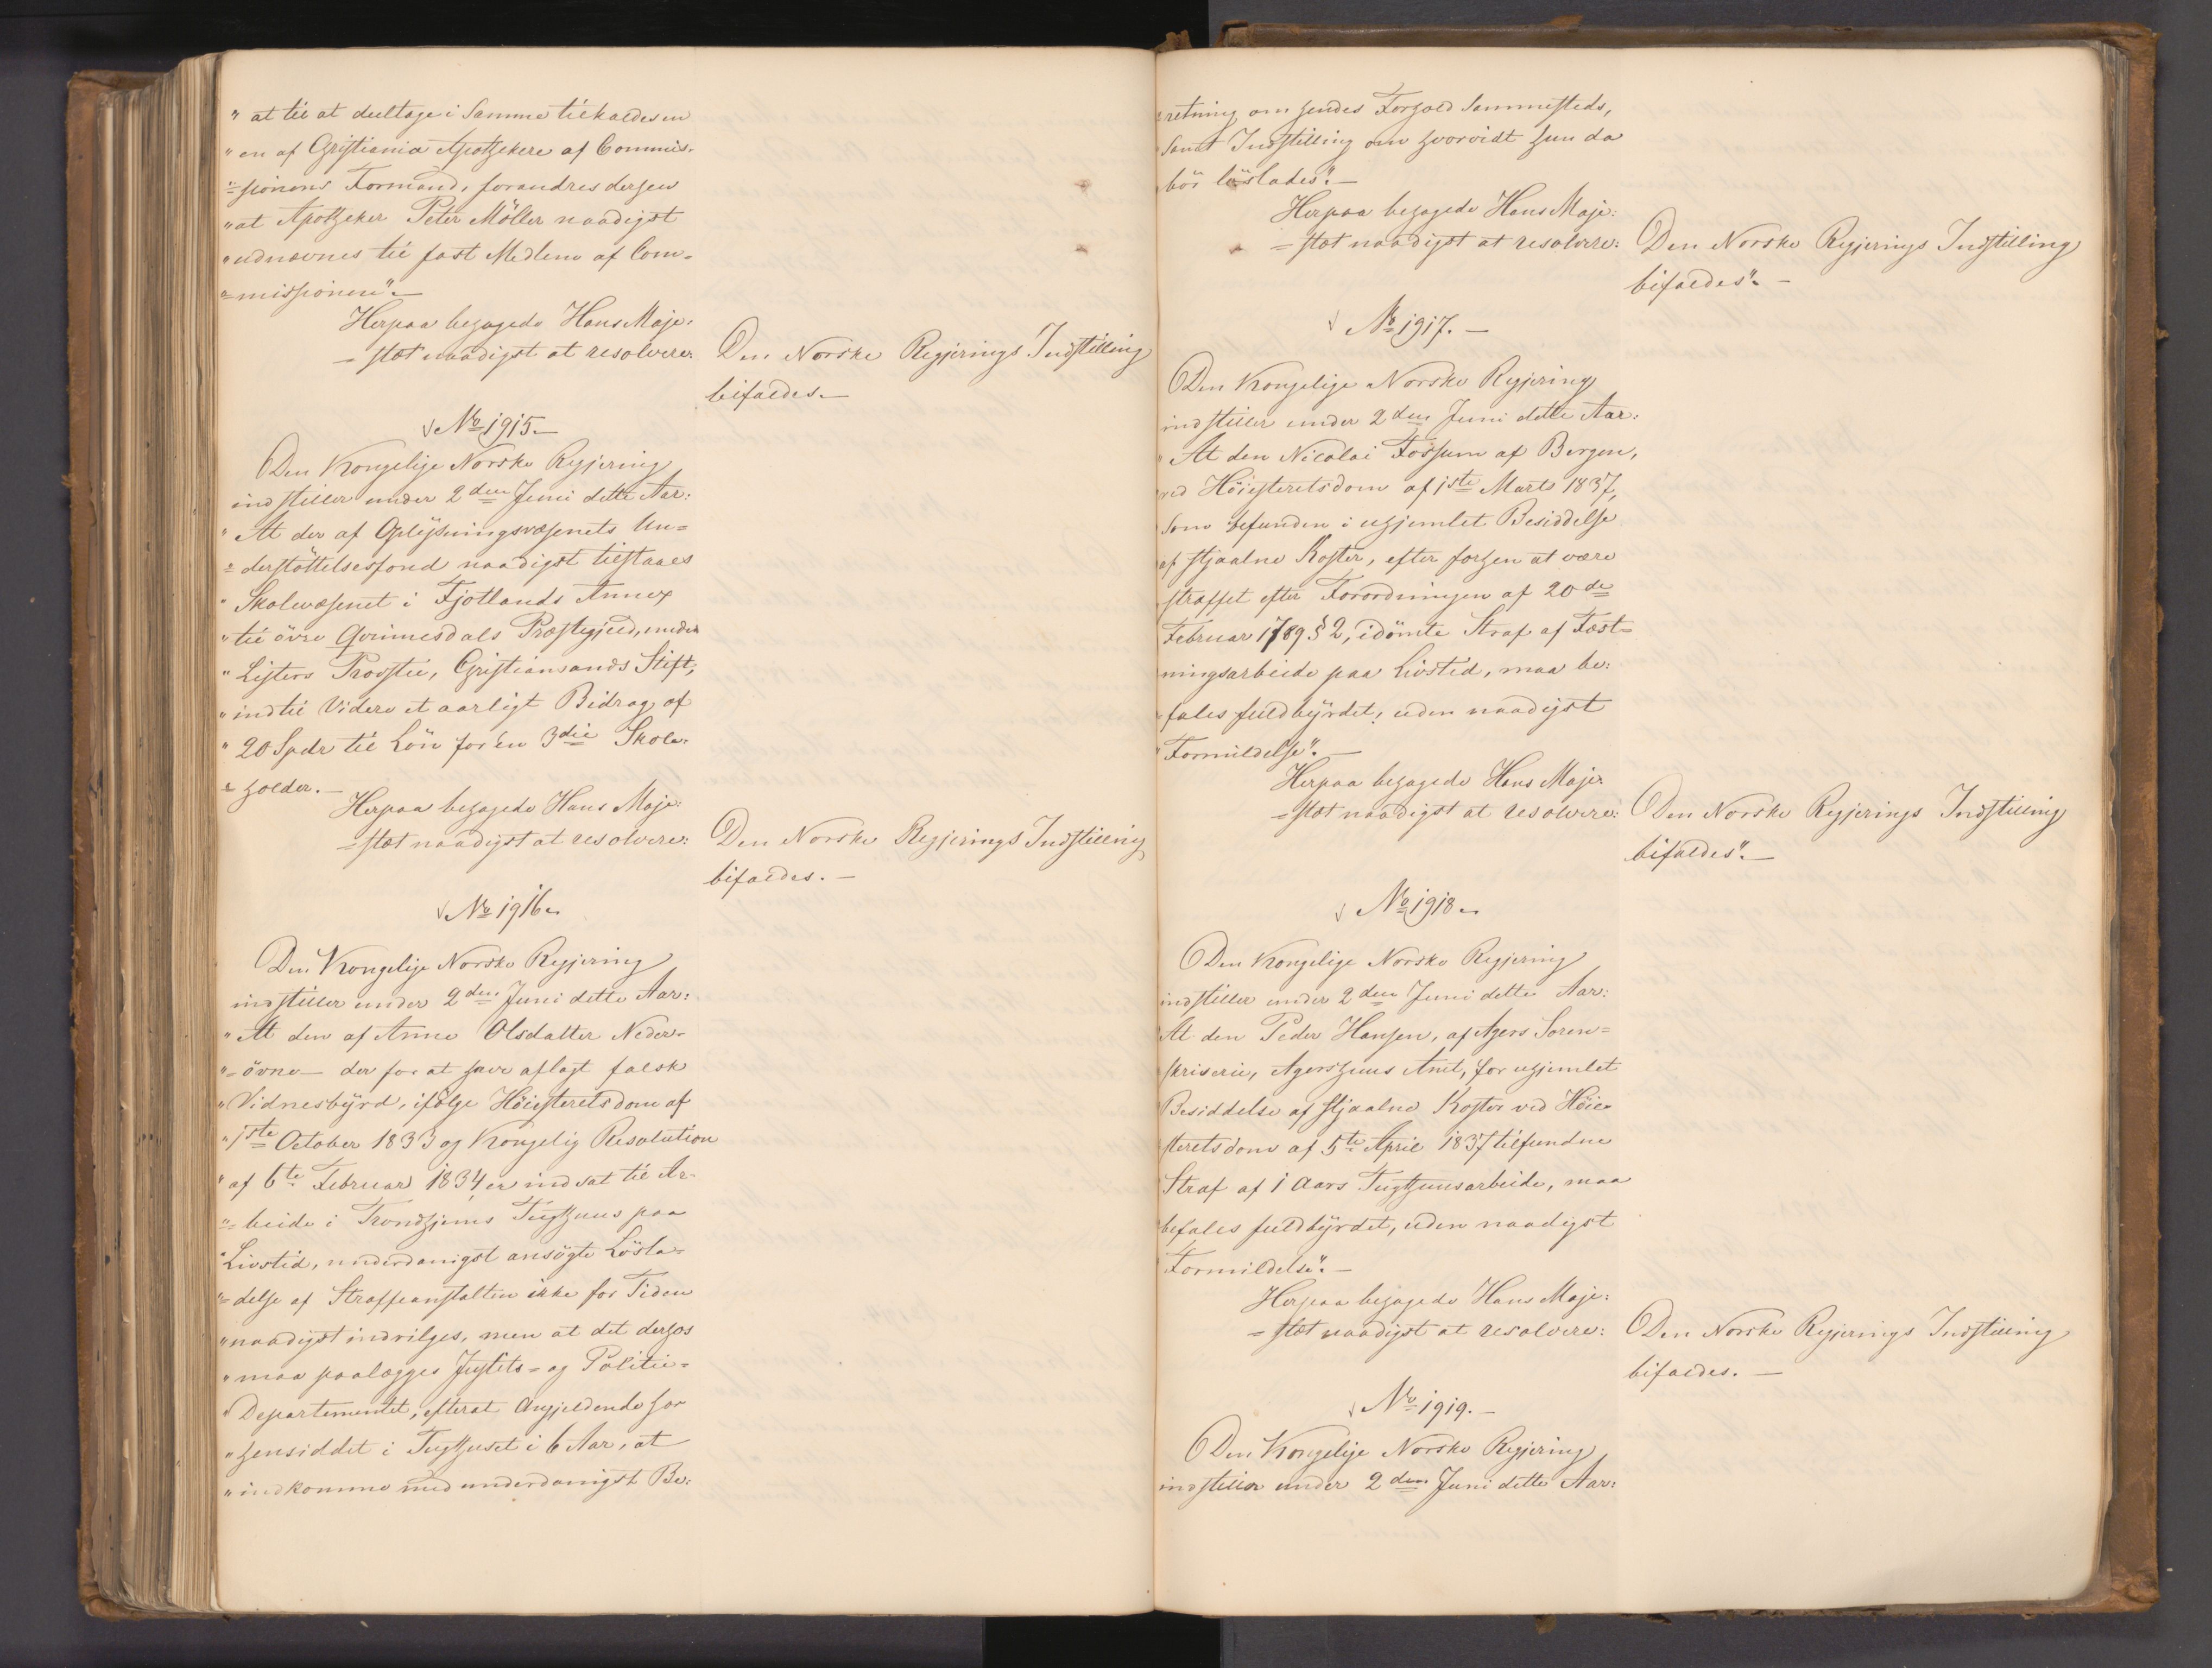 " at til at deeltage i Samme tilkaldes en
" en af Christiania Apothekere af Commis-
"=sionens Formand, forandres derhen
" at Apotheker Peter Möller naadigst
" udnævnes til fast Medlem af Com=
"=missionen". —
Herpaa behagede Hans Maje-
=stæt naadigst at resolvere: Den Norske Regjerings Indstilling
bifaldes. —
No 1915. —
Den Kongelige Norske Regjering
indstiller under 2den Juni dette Aar:
" At der af Oplysningsvæsenets Un=
"=derstöttelsesfond naadigst tilstaaes
" Skolevæsenet i Fjotlands Annex
" til övre Qvinnesdals Præstegjeld, under
" Listers Provstie, Christiansands Stift,
" indtil Videre et aarligt Bidrag af
" 20 Spdr til Lön for en 3die Skole-
"=holder. —
Herpaa behagede Hans Maje-
=stæt naadigst at resolvere: Den Norske Regjerings Indstilling
bifaldes. —
No 1916.
Den Kongelige Norske Regjering
indstiller under 2den Juni dette Aar:
" At den af Anne Olsdatter Neder-
"=övne — der for at have aflagt falsk
" Vidnesbyrd, ifölge Höiesteretsdom af
" 1ste October 1833 og Kongelig Resolution
" af 6te Februar 1834 er indsat til Ar-
"=beide i Trondhjems Tugthuus paa
" Livstid, underdanigst ansögte Lösla=
"=delse af Straffeanstalten ikke for Tiden
" naadigst indvilges, men at det derhos
" maa paalægges Justits= og Politie=
" Departementet, efterat Angjeldende har
" hensiddet i Tugthuset i 6 Aar, at
" indkomme med underdanigst Be-
=retning om hendes Forhold sammesteds,
samt Indstilling om hvorvidt hun da
bör löslades". —
Herpaa behagede Hans Maje-
=stæt naadigst at resolvere: Den Norske Regjerings Indstilling
bifaldes". —
No 1917. —
Den Kongelige Norske Regjering
indstiller under 2den Juni dette Aar:
" At den Nicolai Fossum af Bergen,
ved Höiesteretsdom af 1ste Marts 1837,
som befunden i uhjemlet Besiddelse
af stjaalne Koster, efter forhen at være
straffet efter Forordningen af 20de
Februar 1789 § 2, idömte Straf af Fæst=
ningsarbeide paa Livstid, maa be-
fales fuldbyrdet, uden naadigst
" Formildelse". —
Herpaa behagede Hans Maje-
=stæt naadigst at resolvere: Den Norske Regjerings Indstilling
bifaldes". —
No 1918.
Den Kongelige Norske Regjering
indstiller under 2den Juni dette Aar:
At den Peder Hansen, af Agers Soren=
skriverie, Agershuus Amt, for uhjemlet
Besiddelse af stjaalne Koster ved Höie-
steretsdom af 5te April 1837 tilfundne
Straf af 1 Aars Tugthuusarbeide, maa
befales fuldbyrdet, uden naadigst
Formildelse". —
Herpaa behagede Hans Maje-
=stæt naadigst at resolvere: Den Norske Regjerings Indstilling
bifaldes. —
No 1919. —
Den Kongelige Norske Regjering
indstiller under 2den Juni dette Aar: